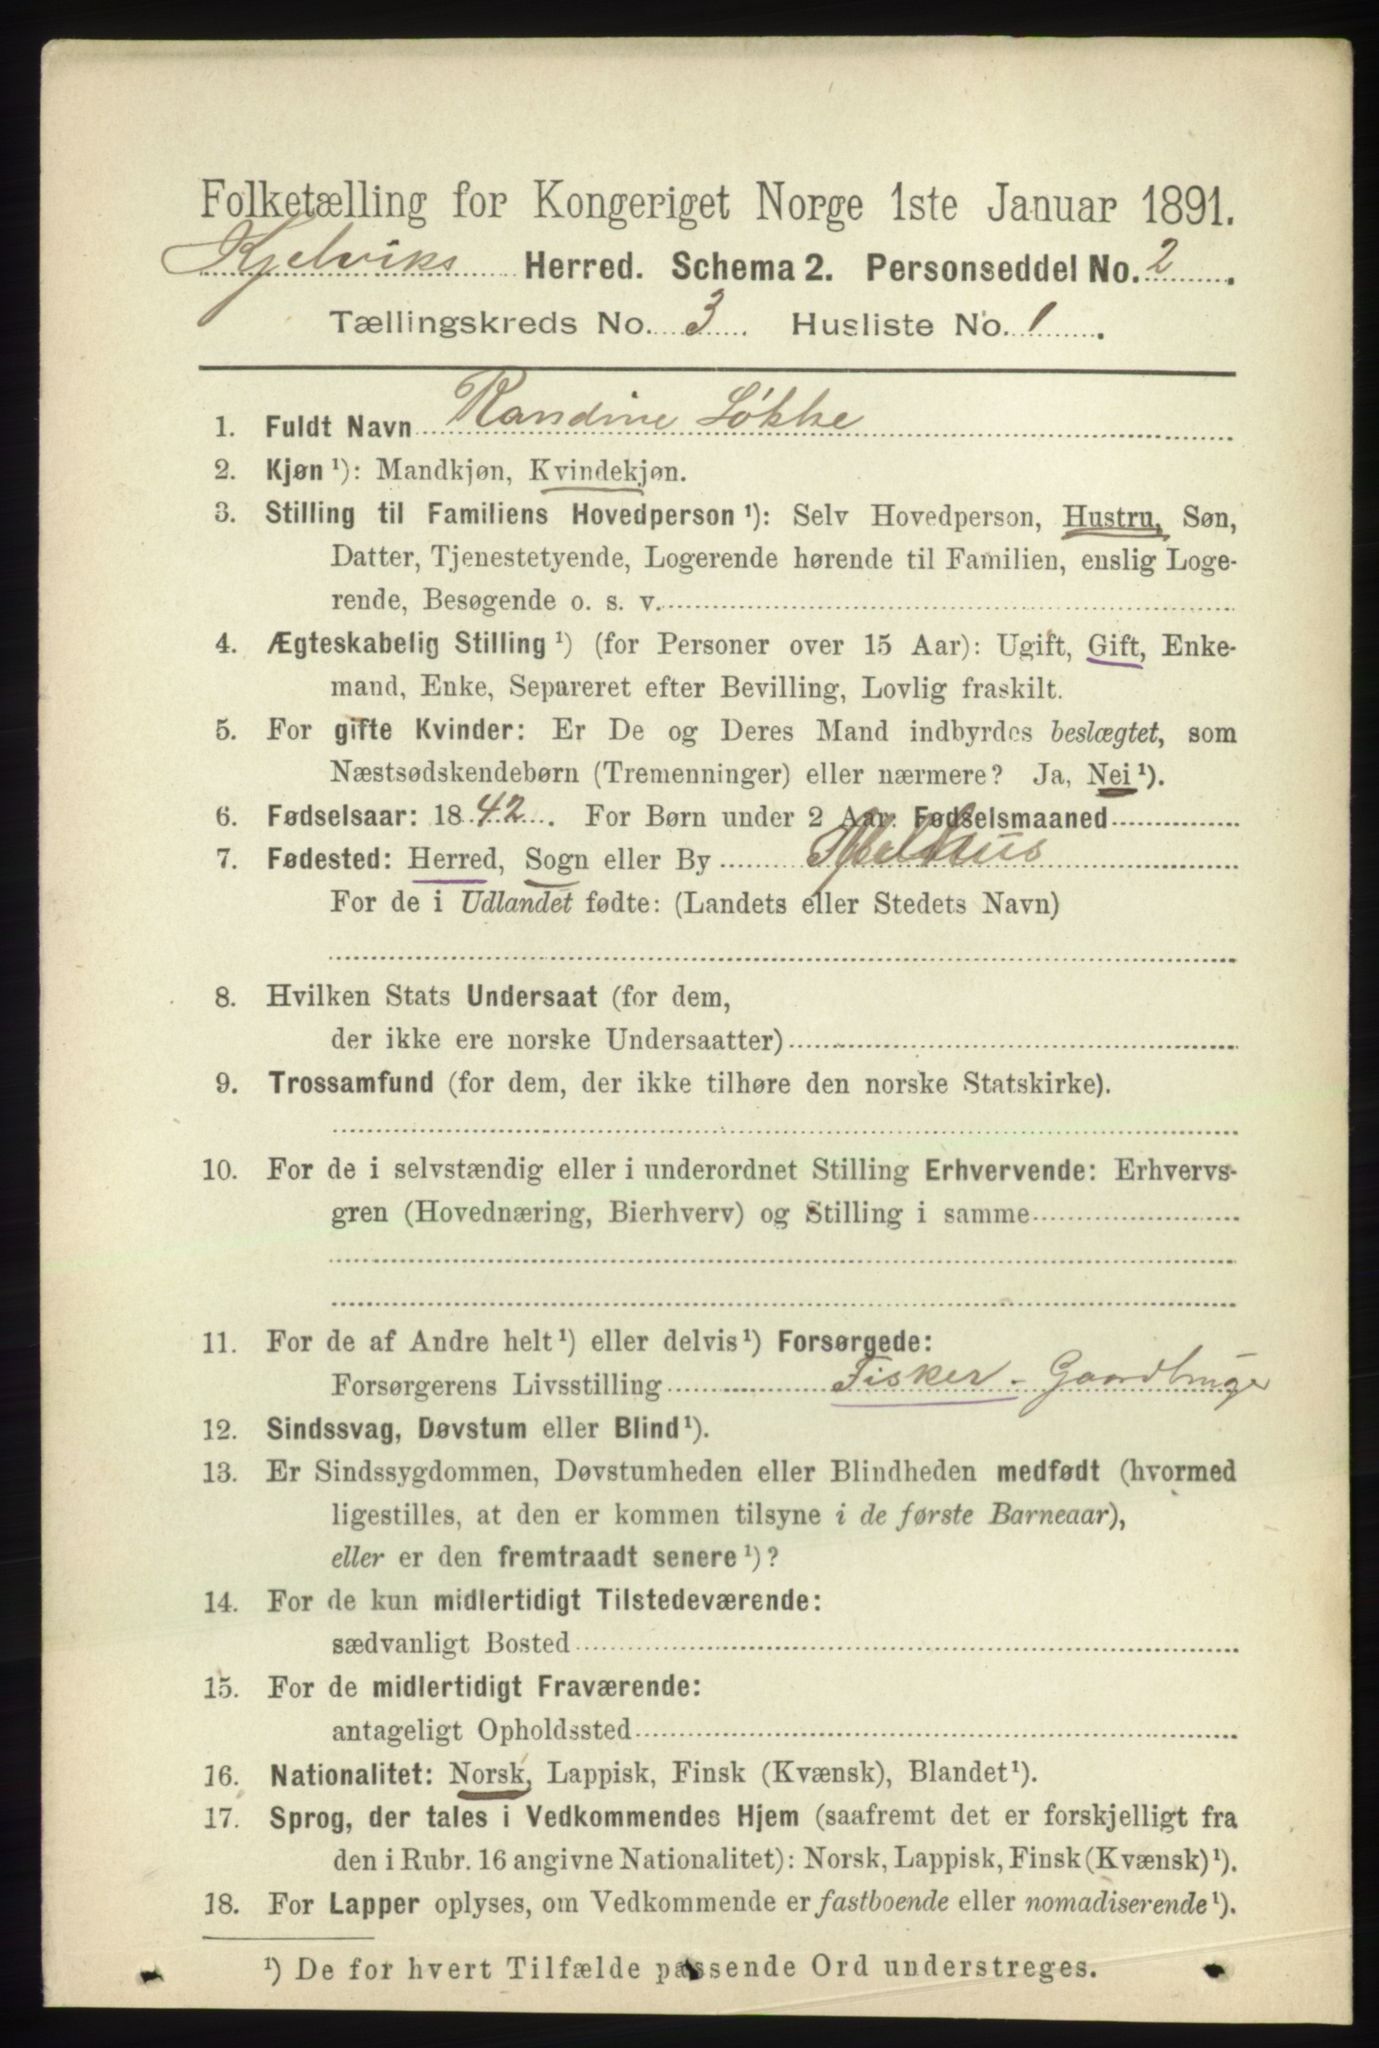 Folketælling for Kongeriget Norge 1ste Januar 1891.
Kjelviks Herred. Schema 2. Personseddel No. 2.
Tællingskreds No. 3. Husliste No. 1.
1. Fuldt Navn Randine Løkke
2. Kjøn ¹): Mandkjøn, Kvindekjøn.
3. Stilling til Familiens Hovedperson ¹): Selv Hovedperson, Hustru, Søn,
Datter, Tjenestetyende, Logerende hørende til Familien, enslig Loge-
rende, Besøgende o. s. v.
4. Ægteskabelig Stilling ¹) (for Personer over 15 Aar): Ugift, Gift, Enke-
mand, Enke, Separeret efter Bevilling, Lovlig fraskilt.
5. For gifte Kvinder: Er De og Deres Mand indbyrdes beslægtet, som
Næstsødskendebørn (Tremenninger) eller nærmere? Ja, Nei ¹).
6. Fødselsaar: 1842. For Børn under 2 Aar: Fødselsmaaned
7. Fødested: Herred, Sogn eller By Melhus
For de i Udlandet fødte: (Landets eller Stedets Navn)
8. Hvilken Stats Undersaat (for dem,
der ikke ere norske Undersaatter)
9. Trossamfund (for dem, der ikke tilhøre den norske Statskirke).
10. For de i selvstændig eller i underordnet Stilling Erhvervende: Erhvervs-
gren (Hovednæring, Bierhverv) og Stilling i samme
11. For de af Andre helt ¹) eller delvis ¹) Forsørgede:
Forsørgerens Livsstilling Fisker - Gaardbruger
12. Sindssvag, Døvstum eller Blind ¹).
13. Er Sindssygdommen, Døvstumheden eller Blindheden medfødt (hvormed
ligestilles, at den er kommen tilsyne i de første Barneaar),
eller er den fremtraadt senere ¹)?
14. For de kun midlertidigt Tilstedeværende:
sædvanligt Bosted
15. For de midlertidigt Fraværende:
antageligt Opholdssted
16. Nationalitet: Norsk, Lappisk, Finsk (Kvænsk), Blandet ¹).
17. Sprog, der tales i Vedkommendes Hjem (saafremt det er forskjelligt fra
den i Rubr. 16 angivne Nationalitet): Norsk, Lappisk, Finsk (Kvænsk) ¹).
18. For Lapper oplyses, om Vedkommende er fastboende eller nomadiserende ¹).
¹) De for hvert Tilfælde passende Ord understreges.